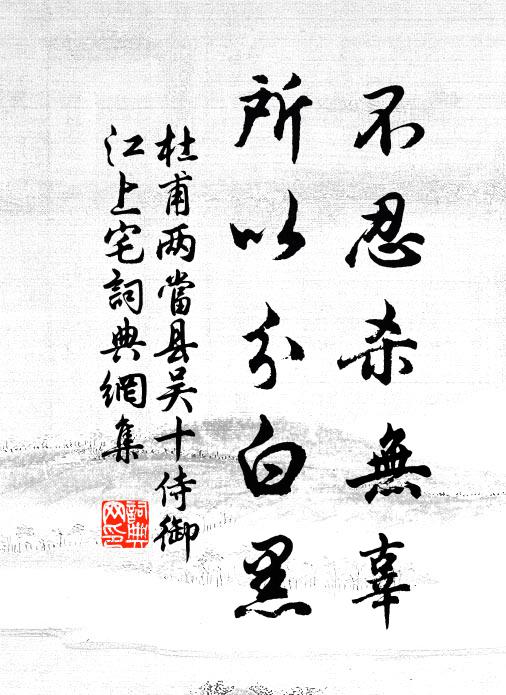 不忍杀無辜
所以分白黑
杜甫两當县吴十侍御
江上宅詞典網集
詞典
网印